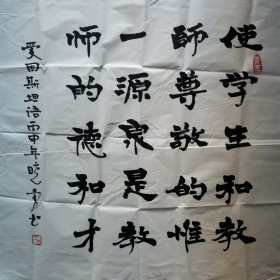 使学生和教
師尊敬的惟
一源泉是教
师的德和才
爱因斯坦语丙申年晓